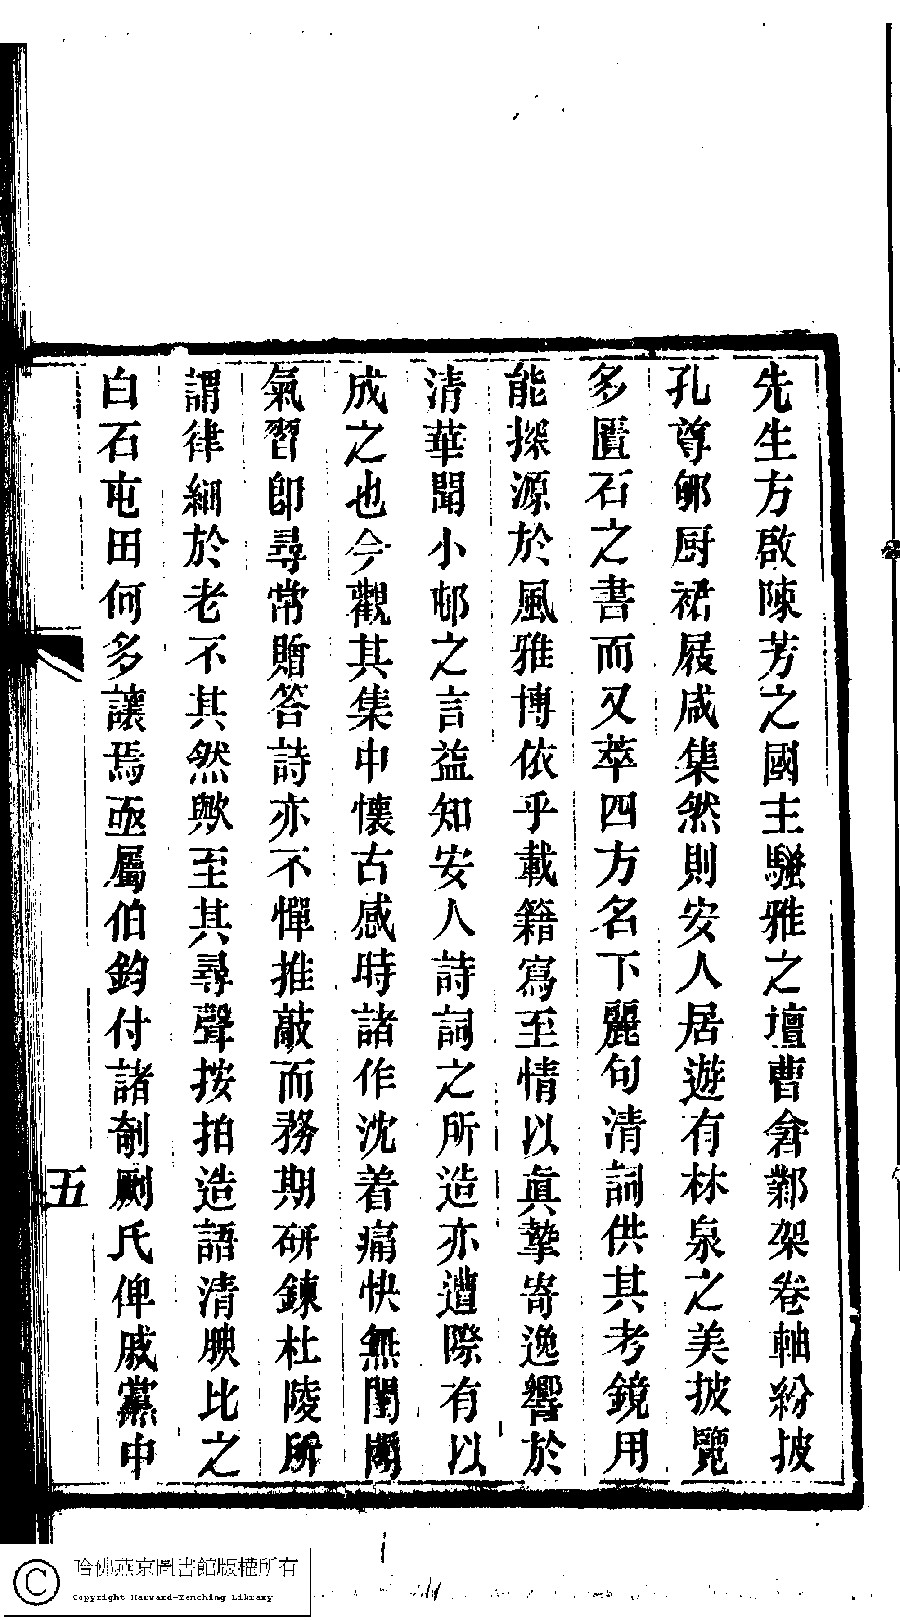 先生方啟陳芳之國主騷雅之壇曹倉鄴架卷軸紛披
孔尊郇厨裙屐咸集然則安人居遊有林泉之美披覽
多匱石之書而又萃四方名下麗句清詞供其考鏡用
能探源於風雅博依乎載籍寫至情以眞摯寄逸響於
清華聞小邨之言益知安人詩詞之所造亦遭際有以
成之也今觀其集中懷古感時諸作沈着痛快無閨閫
氣習卽尋常贈答詩亦不憚推敲而務期研鍊杜陵所
謂律細於老不其然歟至其尋聲按拍造語清腴比之
白石屯田何多讓焉亟屬伯鈞付諸剞劂氏俾戚黨中
五
哈佛燕京圖書館版權所有
Copyright Harvard-Yenching Library